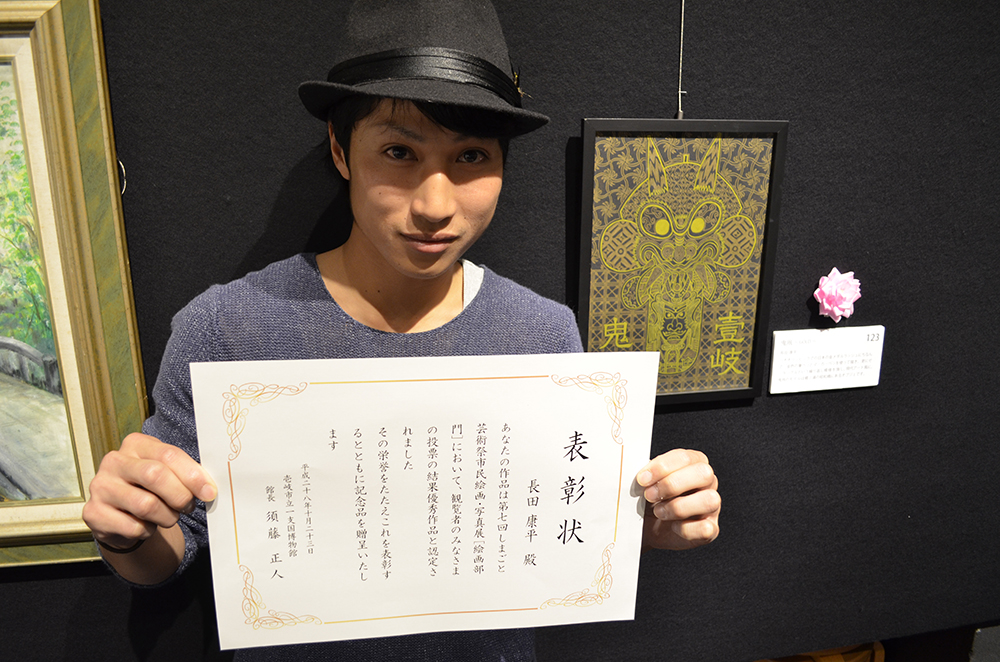 表彰状
長田 康平 殿
あなたの作品は第七回しまごと
芸術祭市民絵画・写真展「絵画部
門」において、観覧者のみなさま
の投票の結果優秀作品と認定さ
れました
その栄誉をたたえこれを表彰す
るとともに記念品を贈呈いたし
ます
平成二十八年十月二十三日
壱岐市立一支国博物館
館長 須藤 正人
壹岐
鬼
123